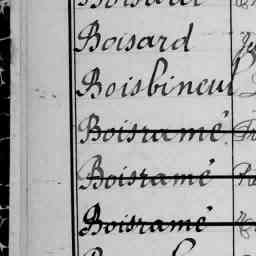 Boisard
Boisbineul
Boisramé
Boisramé
Boisramé